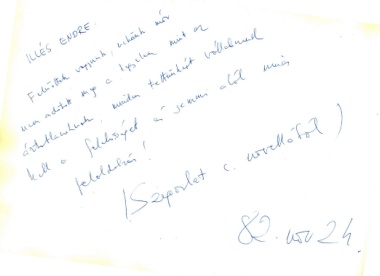 ILLÉS ENDRE.
Felnőttek vagyunk, nekünk már
nem adatott meg a kegyelem mint az
ártatlanoknak, minden tettünkért vállalnunk
kell a felelősséget és semmi alól nincs
feloldozás!
(Szeposlet c. novellából)
82. nov 24.